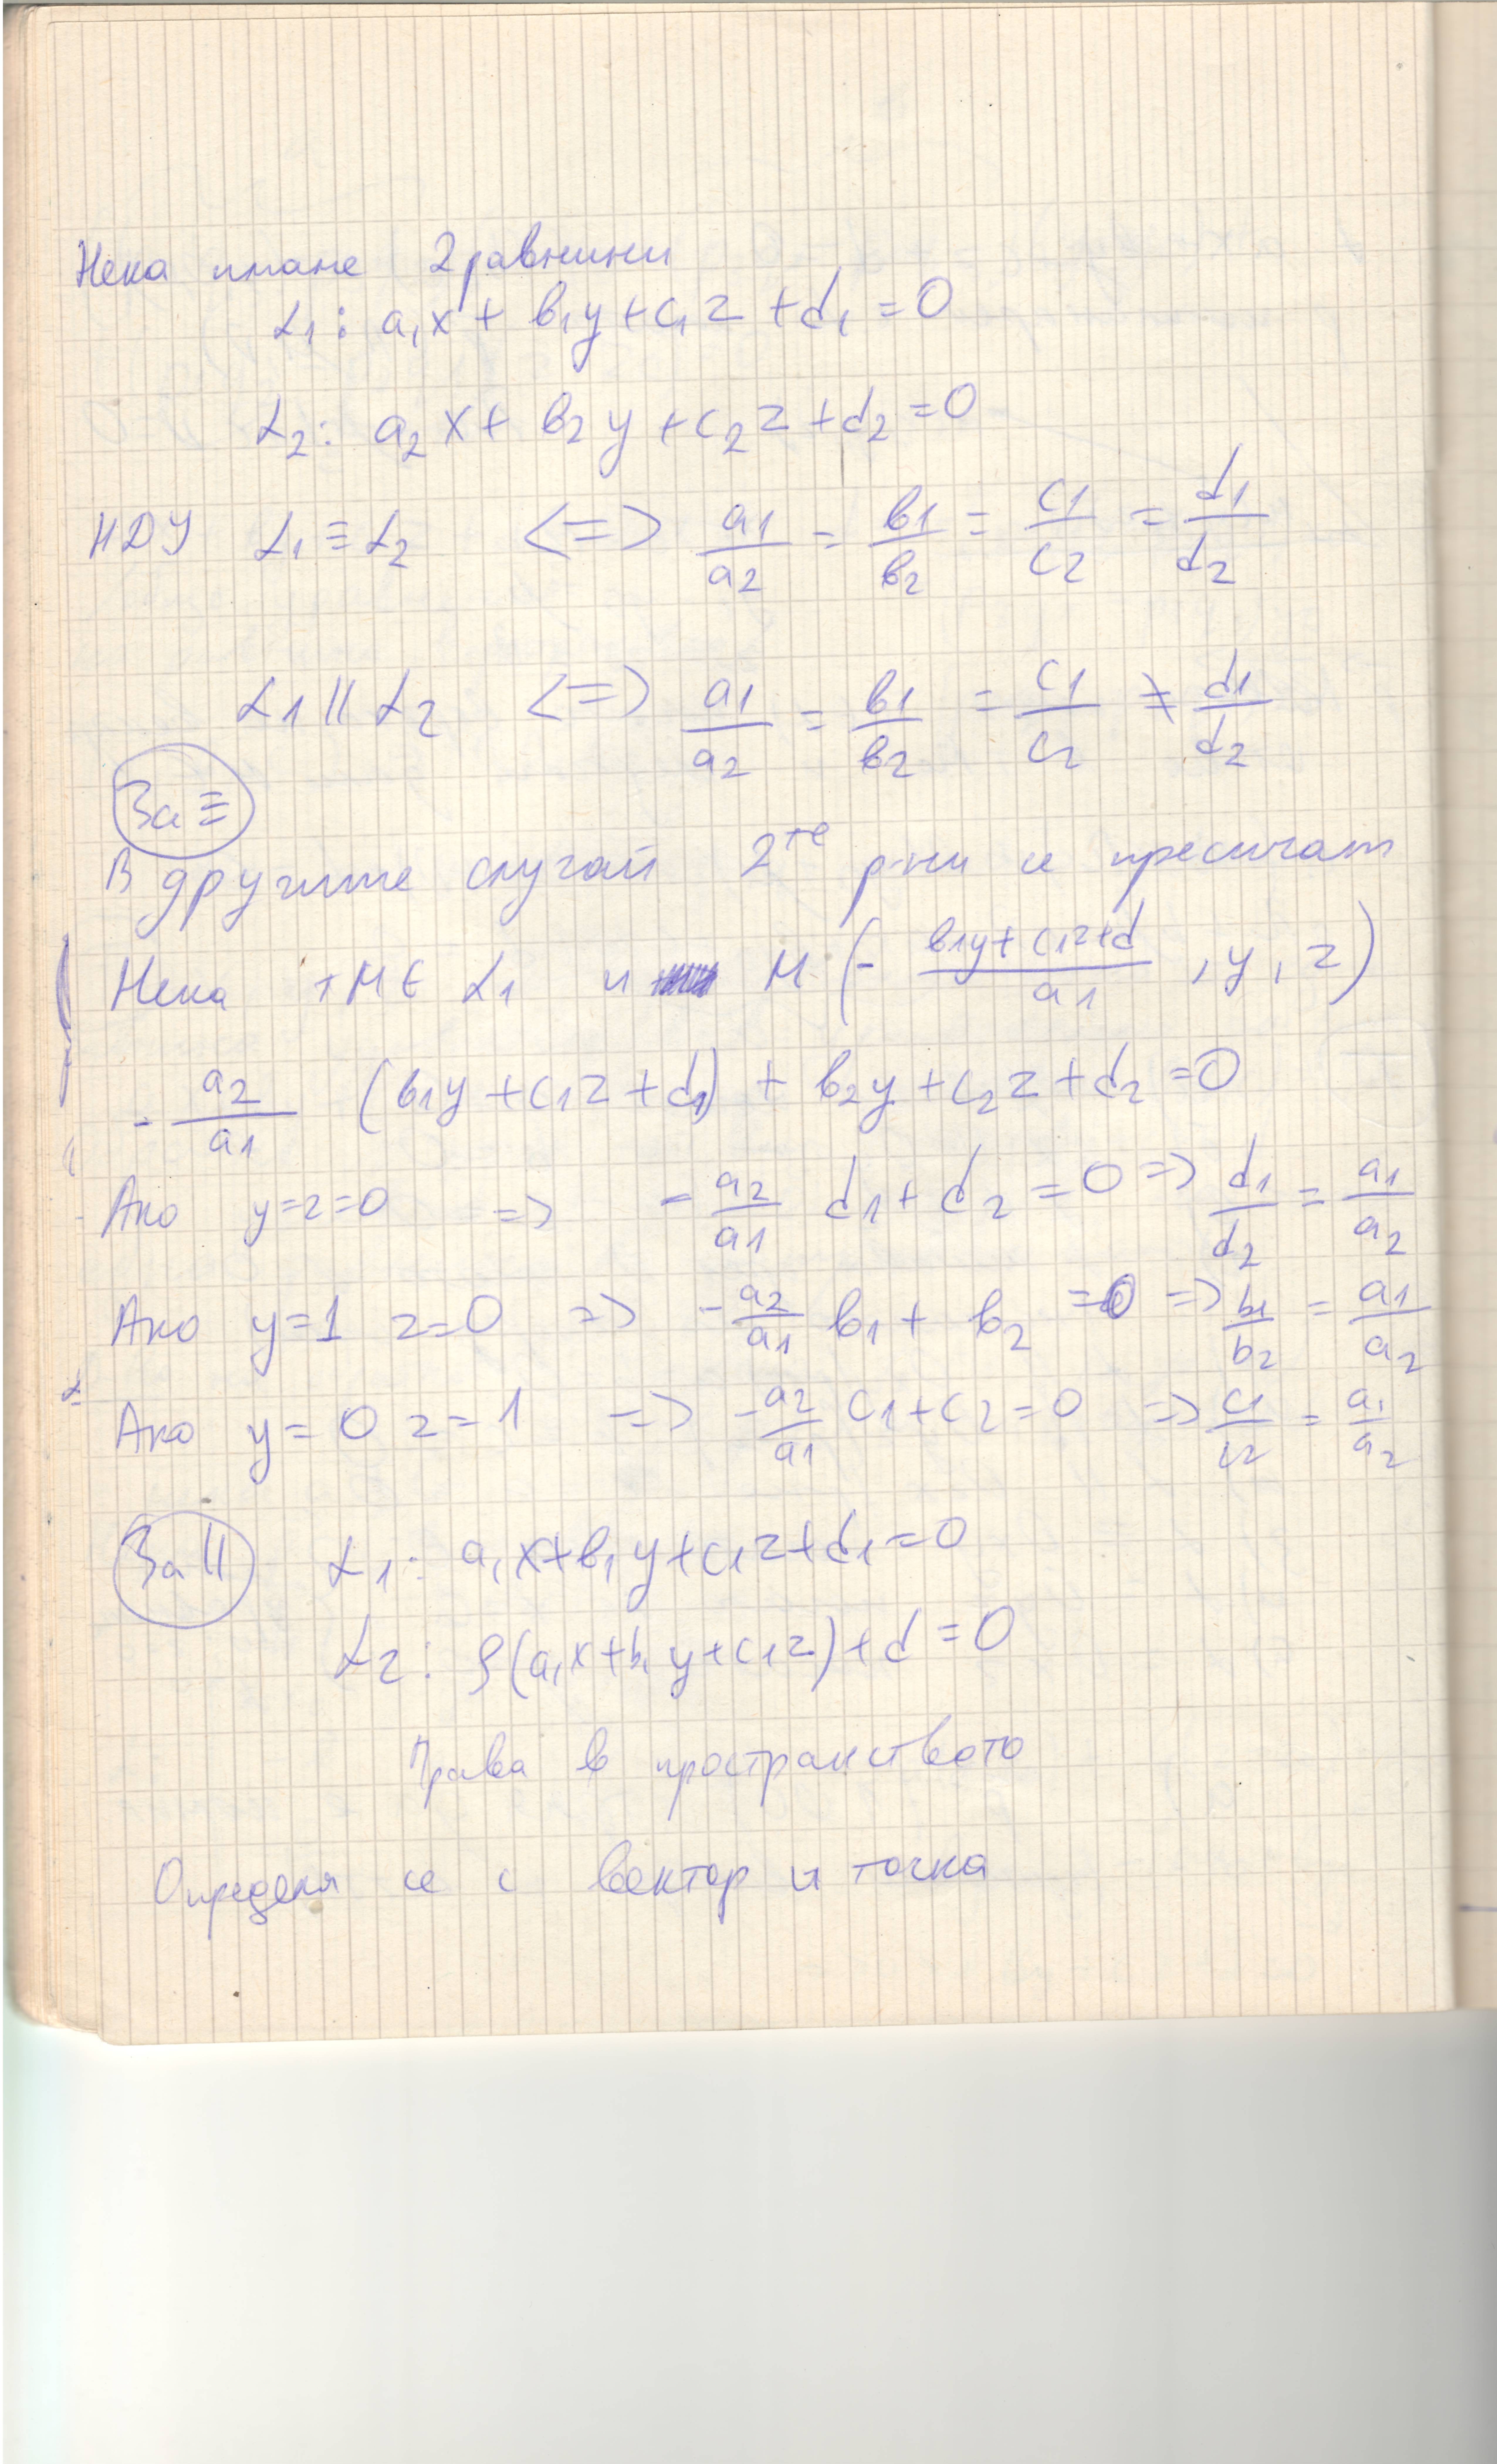 Нека имаме 2 равнини
α₁: a₁x + b₁y + c₁z + d₁ = 0
α₂: a₂x + b₂y + c₂z + d₂ = 0
НДУ α₁ ≡ α₂ <=> a₁/a₂ = b₁/b₂ = c₁/c₂ = d₁/d₂
α₁ || α₂ <=> a₁/a₂ = b₁/b₂ = c₁/c₂ ≠ d₁/d₂
За ≡
В другите случаи 2те р-ни се пресичат
Нека т M ∈ α₁ и M (- (b₁y + c₁z + d)/a₁ , y, z)
- a₂/a₁ (b₁y + c₁z + d₁) + b₂y + c₂z + d₂ = 0
Ако y=z=0 => - a₂/a₁ d₁ + d₂ = 0 => d₁/d₂ = a₁/a₂
Ако y=1 z=0 => - a₂/a₁ b₁ + b₂ = 0 => b₁/b₂ = a₁/a₂
Ако y=0 z=1 => - a₂/a₁ c₁ + c₂ = 0 => c₁/c₂ = a₁/a₂
За || α₁: a₁x + b₁y + c₁z + d₁ = 0
α₂: ρ(a₁x + b₁y + c₁z) + d = 0
Права в пространството
Определя се с вектор и точка